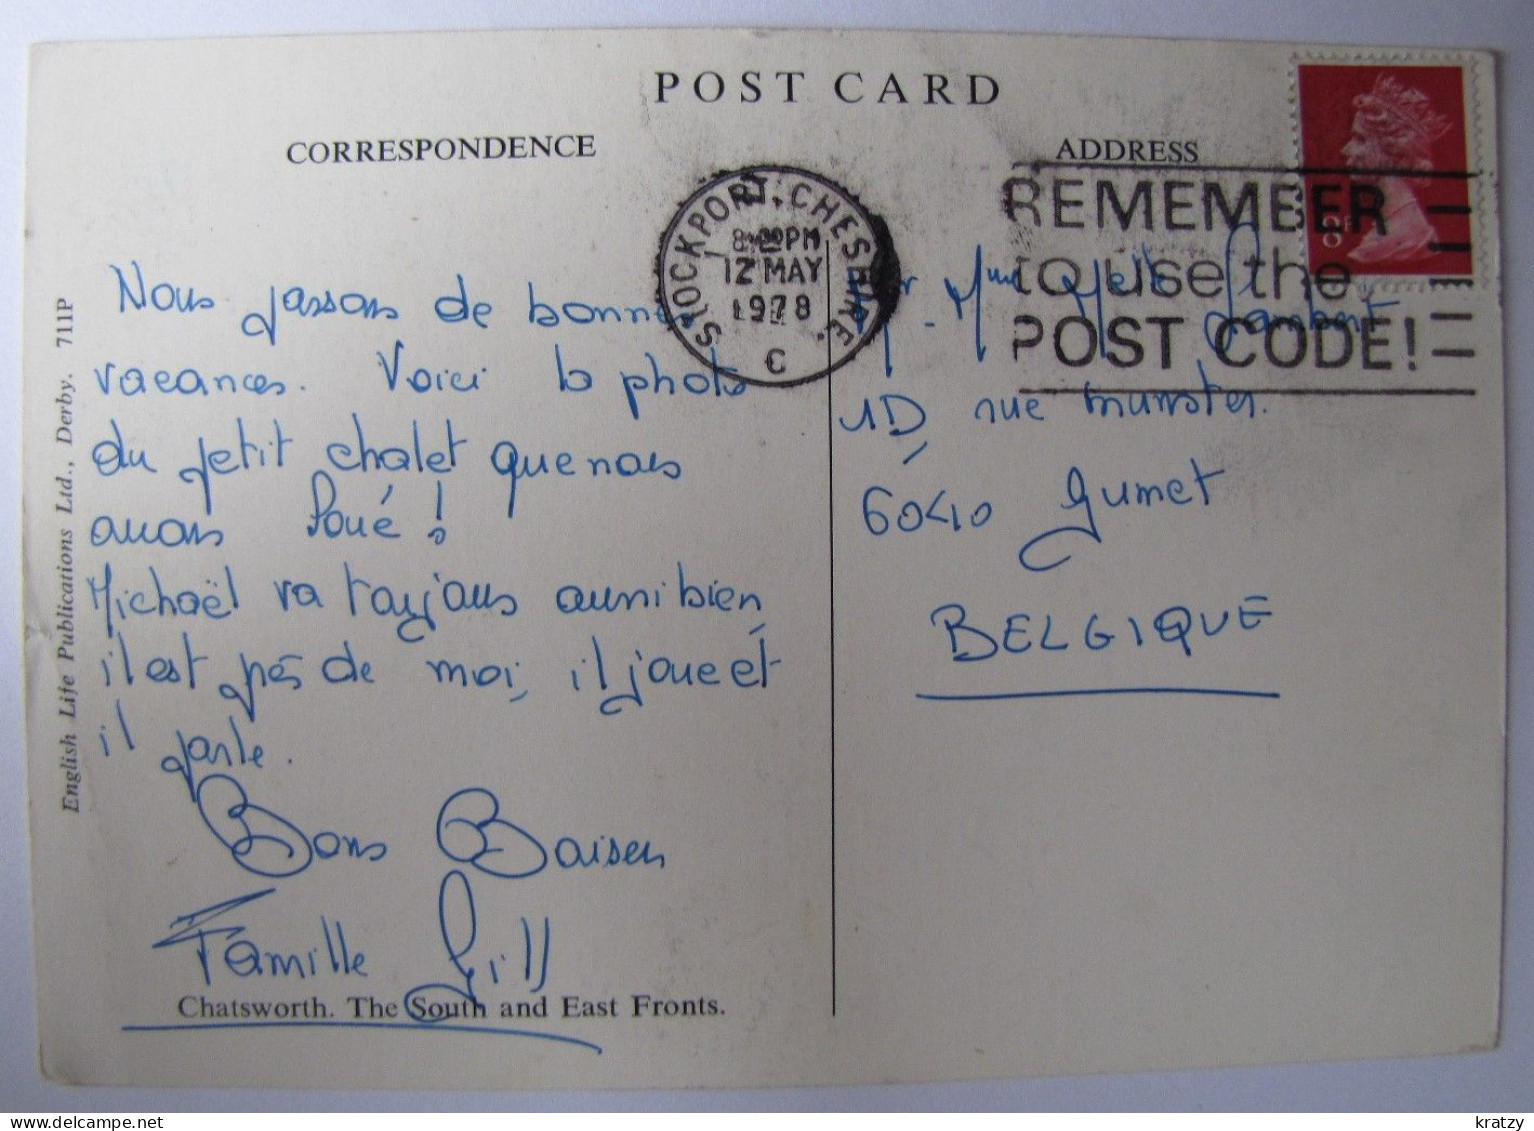 POST CARD
CORRESPONDENCE
ADDRESS
STOCKPORT, CHESHIRE.
8:00PM
12 MAY
1978
C
REMEMBER
to use the
POST CODE!
8P
Nous passons de bonnes
vacances. Voici la photo
du petit chalet que nous
avons loué!
Michaël va toujours aussi bien,
il est près de moi, il joue et
il parle.
Bons Baisers
Famille Gill
Chatsworth. The South and East Fronts.
English Life Publications Ltd., Derby. 711P
Mr Mme Melle G. Lambert
1D, rue munster.
6040 Jumet
BELGIQUE
kratzy
delcampe.net